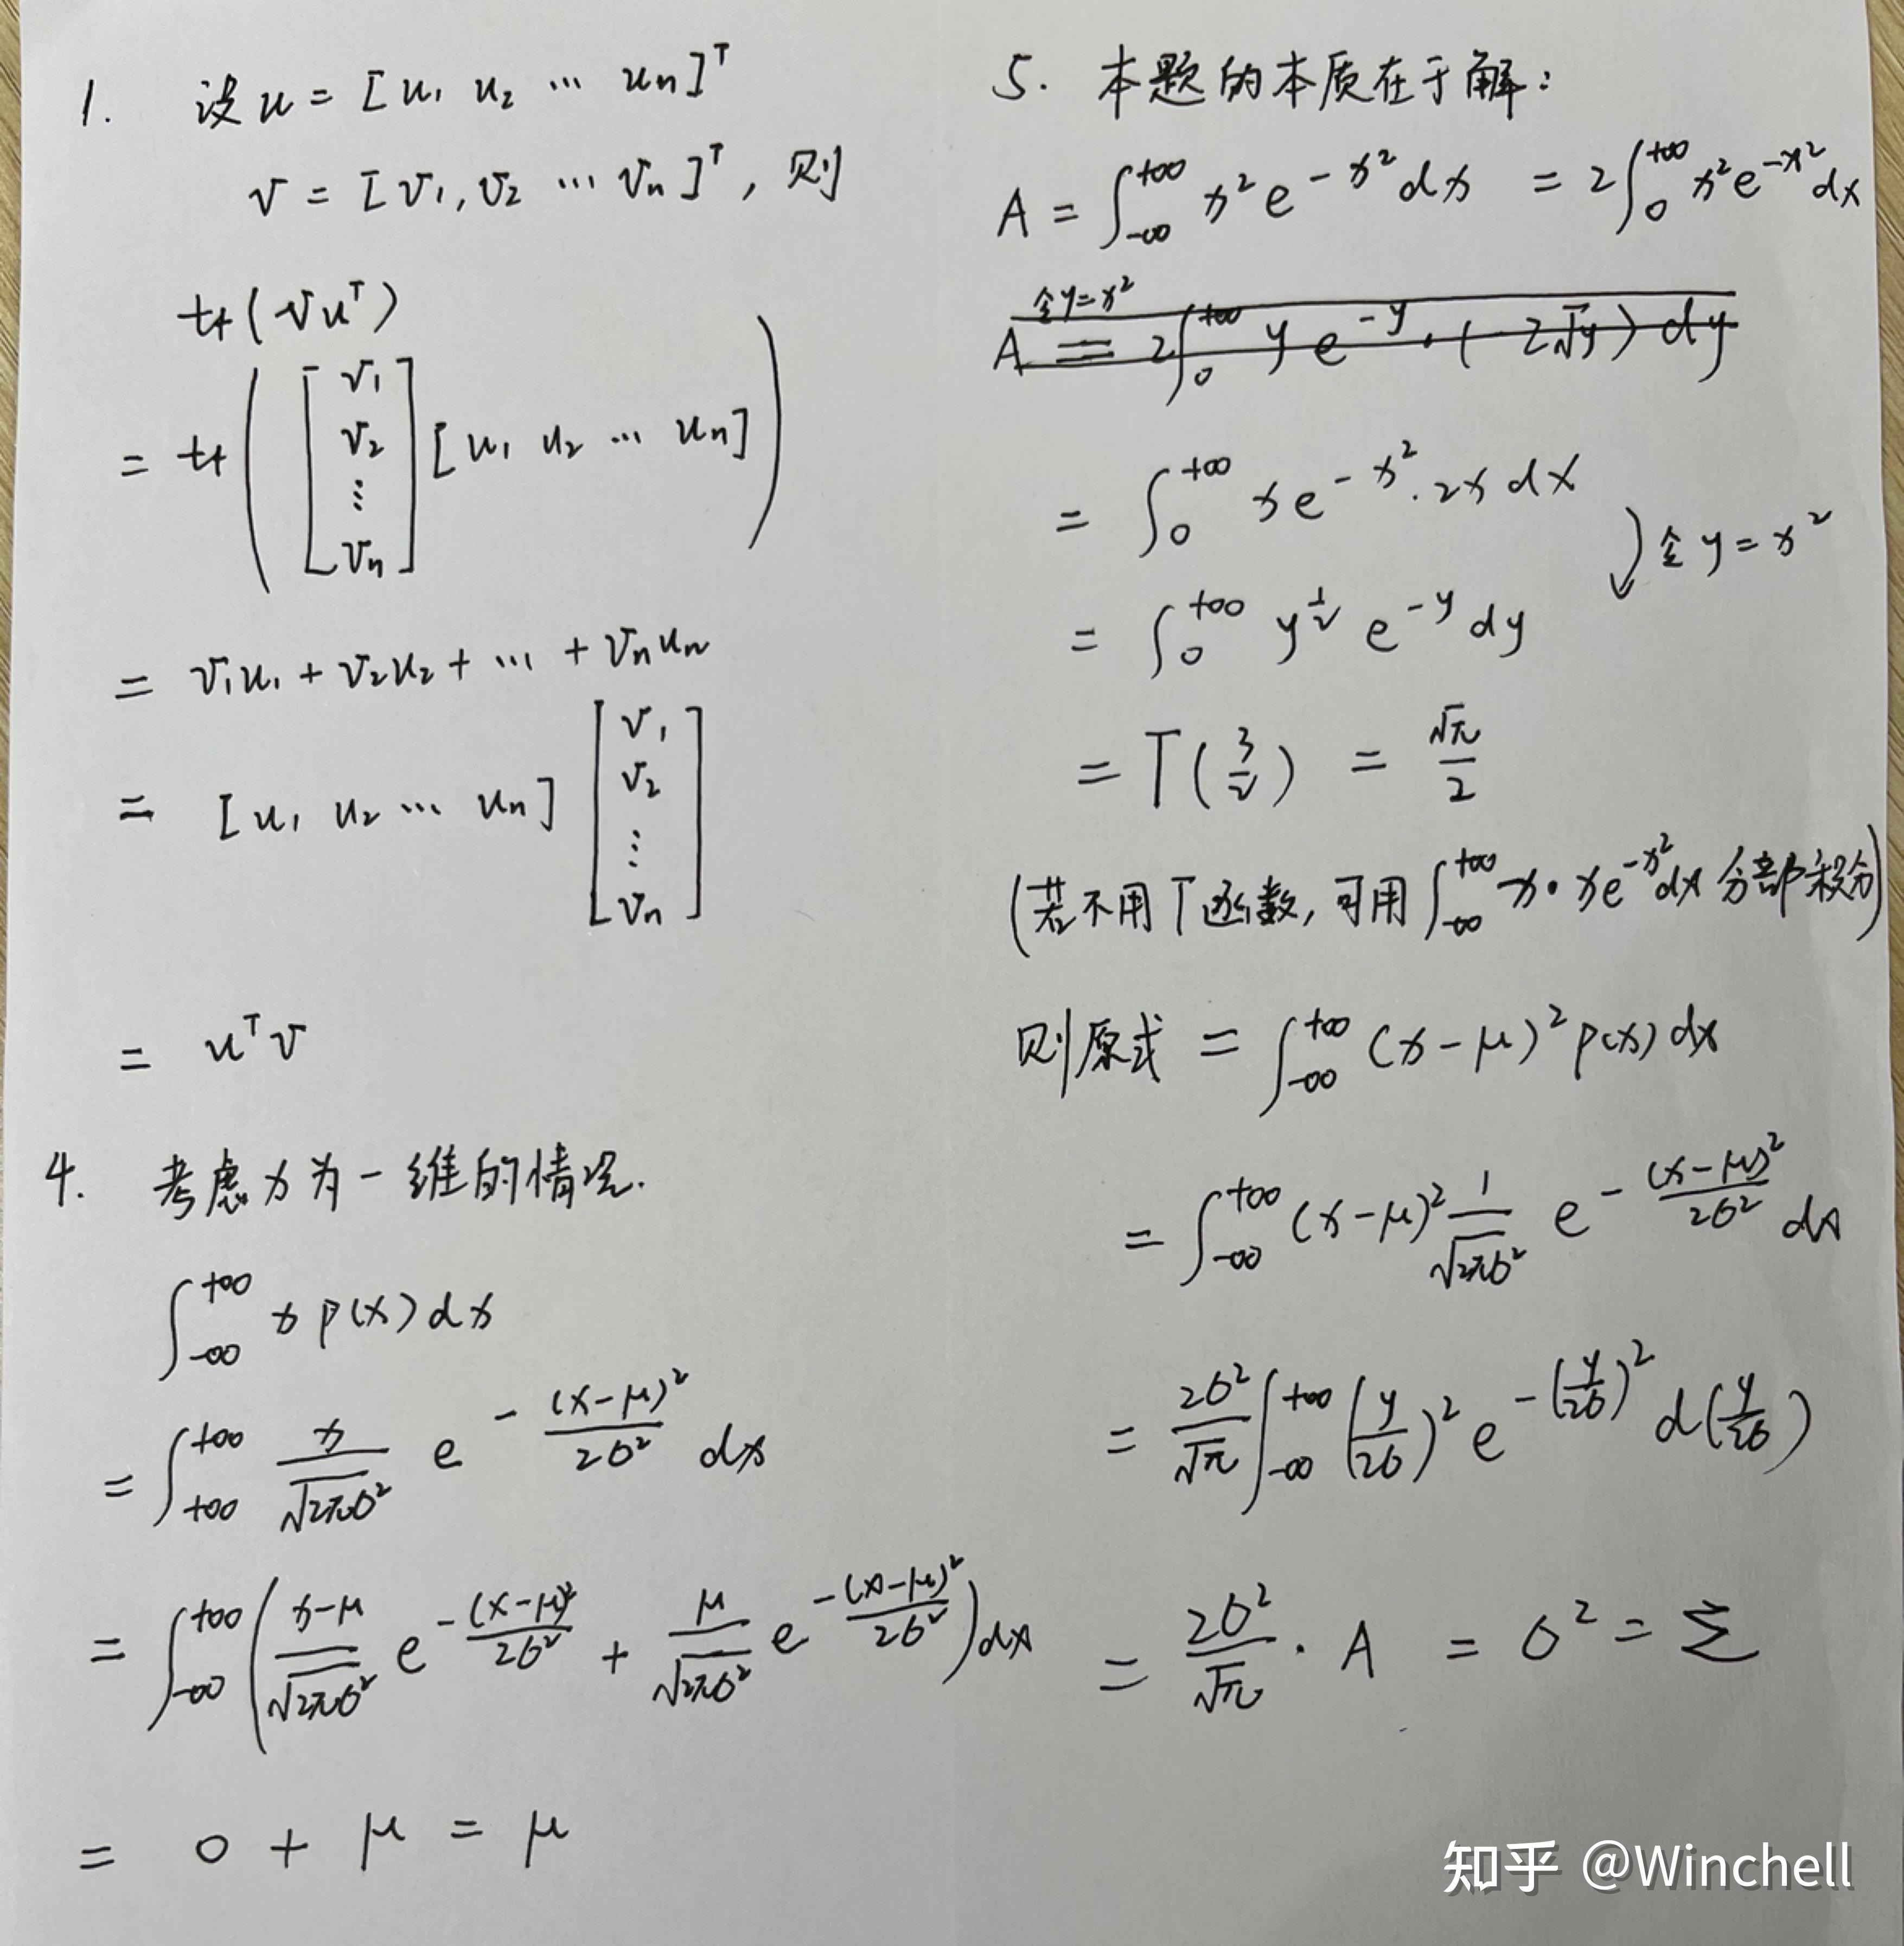 1. 设 u = [u₁ u₂ … uₙ]ᵀ
v = [v₁, v₂ … vₙ]ᵀ, 则
tr(vuᵀ)
= tr([v₁ v₂ ⋮ vₙ][u₁ u₂ … uₙ])
= v₁u₁ + v₂u₂ + … + vₙuₙ
= [u₁ u₂ … uₙ][v₁ v₂ ⋮ vₙ]
= uᵀv
4. 考虑x为一维的情况.
∫_{-∞}^{+∞} x p(x) dx
= ∫_{+∞}^{+∞} x/√(2πσ²) e^{-(x-μ)²/2σ²} dx
= ∫_{-∞}^{+∞} ( (x-μ)/√(2πσ²) e^{-(x-μ)²/2σ²} + μ/√(2πσ²) e^{-(x-μ)²/2σ²} ) dx
= 0 + μ = μ
5. 本题的本质在于解:
A = ∫_{-∞}^{+∞} x² e^{-x²} dx = 2∫_0^{+∞} x² e^{-x²} dx
令y=x²
A = 2∫_0^{+∞} y e^{-y} · (-2√y) dy
= ∫_0^{+∞} x e^{-x²} · 2x dx
令 y = x²
= ∫_0^{+∞} y^{1/2} e^{-y} dy
= Γ(3/2) = √π/2
(若不用Γ函数, 可用 ∫_{-∞}^{+∞} x · x e^{-x²} dx 分部积分)
则原式 = ∫_{-∞}^{+∞} (x-μ)² p(x) dx
= ∫_{-∞}^{+∞} (x-μ)² 1/√(2πσ²) e^{-(x-μ)²/2σ²} dx
= 2σ²/√π ∫_{-∞}^{+∞} (y/2σ)² e^{-(y/2σ)²} d(y/2σ)
= 2σ²/√π · A = σ² = Σ
知乎 @Winchell